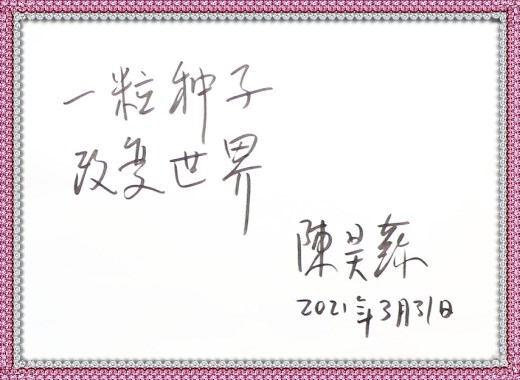 一粒种子
改变世界
陳昊蘇
2021年3月31日